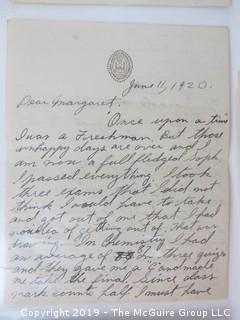 June 11, 1920.
Dear Margaret,
Once upon a time
I was a Freshman. But those
unhappy days are over and I
am now a full fledged Soph.
I passed everything. I took
three exams that I did not
think I would have to take
and got out of one that I had
no idea of getting out of. That was
drawing. In Chemistry I had
an average of on three quizzes
and they gave me a "C" and made
me take the final. Since class
mark counts half I must have
Copyright 2019 - The McGuire Group LLC